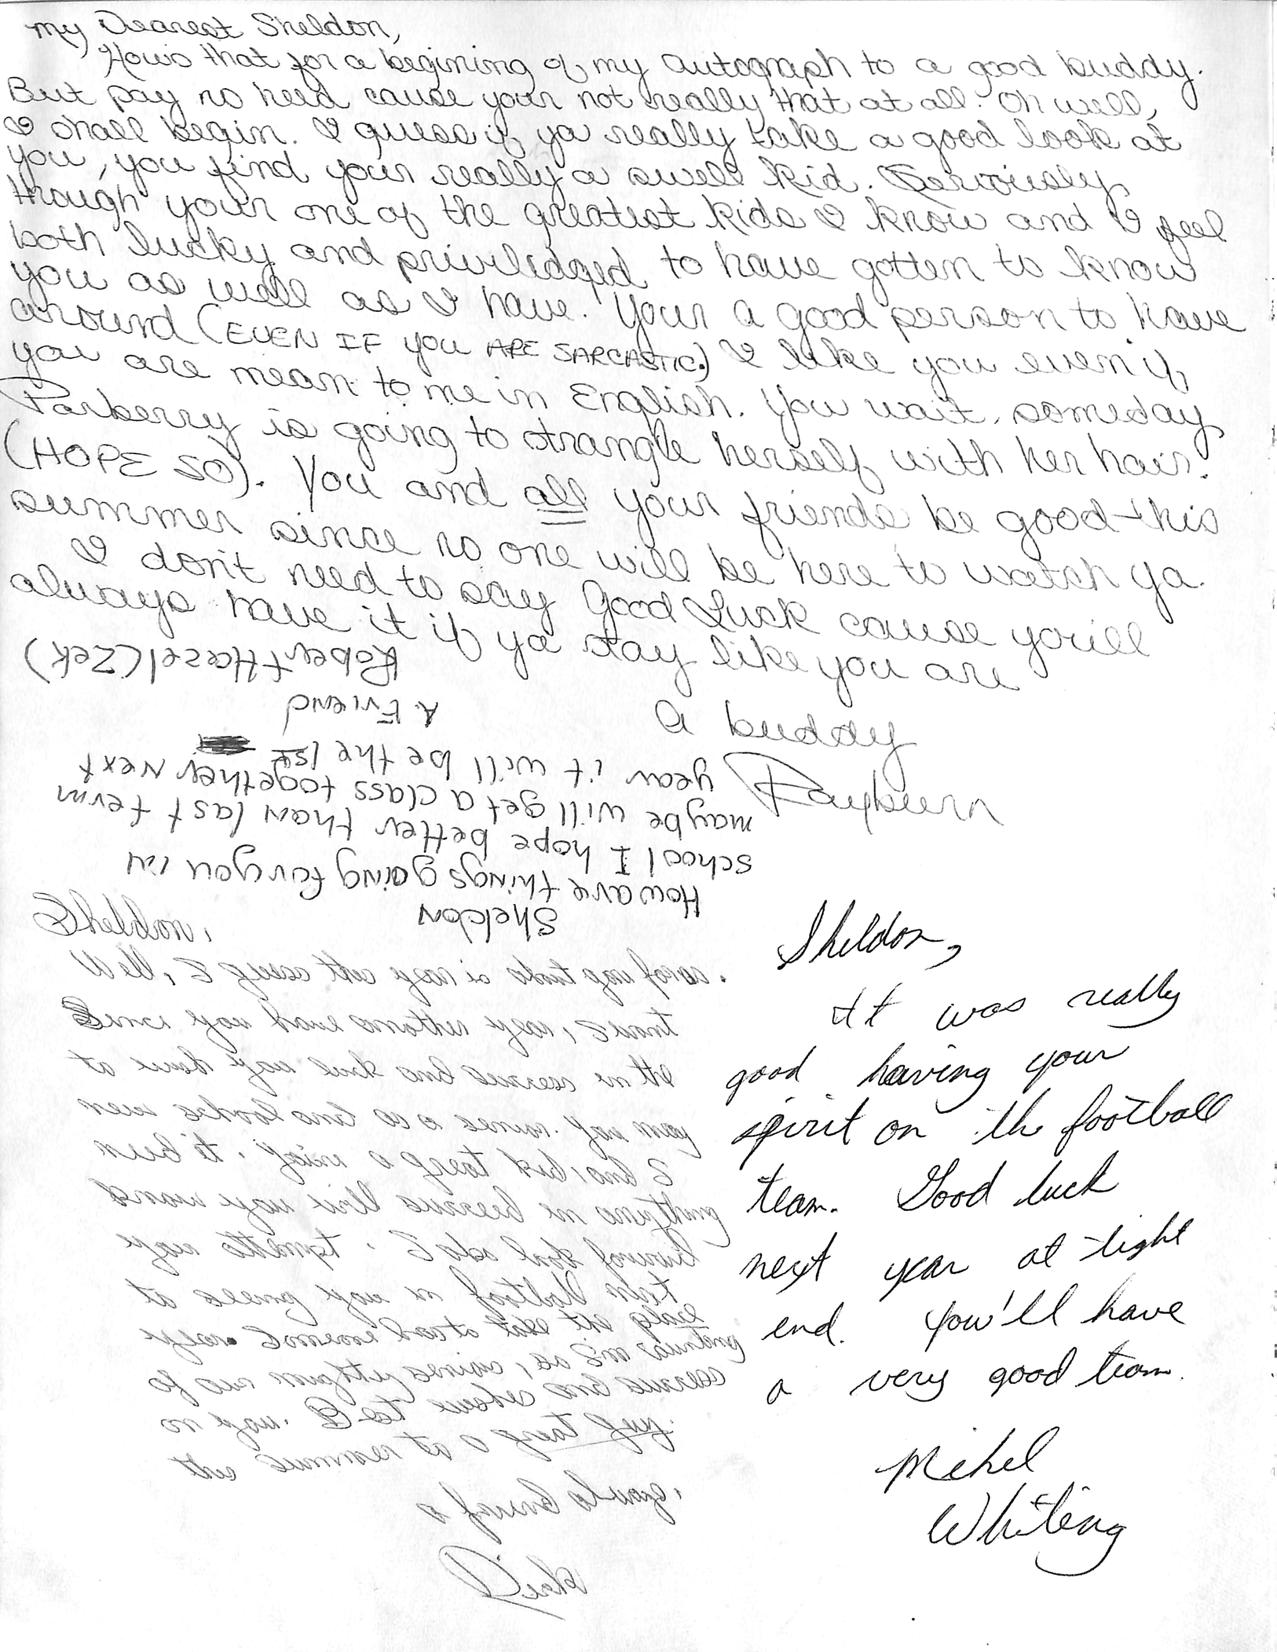 my Dearest Sheldon,
Hows that for a begining of my autograph to a good buddy.
But pay no heed cause your not really that at all. Oh well,
I shall begin. I guess if ya really take a good look at
you, you find your really a swell kid. Seriously
though your one of the greatest kids I know and I feel
both lucky and priviledged to have gotten to know
you as well as I have. Your a good person to have
around (EVEN IF you ARE SARCASTIC.) I like you even if
you are mean to me in English. You wait, someday
Parberry is going to strangle herself with her hair.
(HOPE SO). You and all your friends be good this
summer since no one will be here to watch ya.
I don't need to say Good Luck cause you'll
always have it if ya stay like you are
a buddy
Rayburn
Sheldon
How are things going for you in
school I hope better than last term
maybe will get a class together next
year it will be the 1st
A Friend
Robert Hazel (Zek)
Sheldon,
Well, I guess the year is about gone
Since you have another year, I want
to you luck and success in the
a great kid, I
success in anything
I also look forward
to seeing you in football next
year. Someone has to take the place
of our seniors, as I'm counting
on you. Best and success
the summer to a great guy.
a friend always,
Rick
Sheldon,
It was really
good having your
spirit on the football
team. Good luck
next year at tight
end. You'll have
a very good team.
Mihel
Whiting